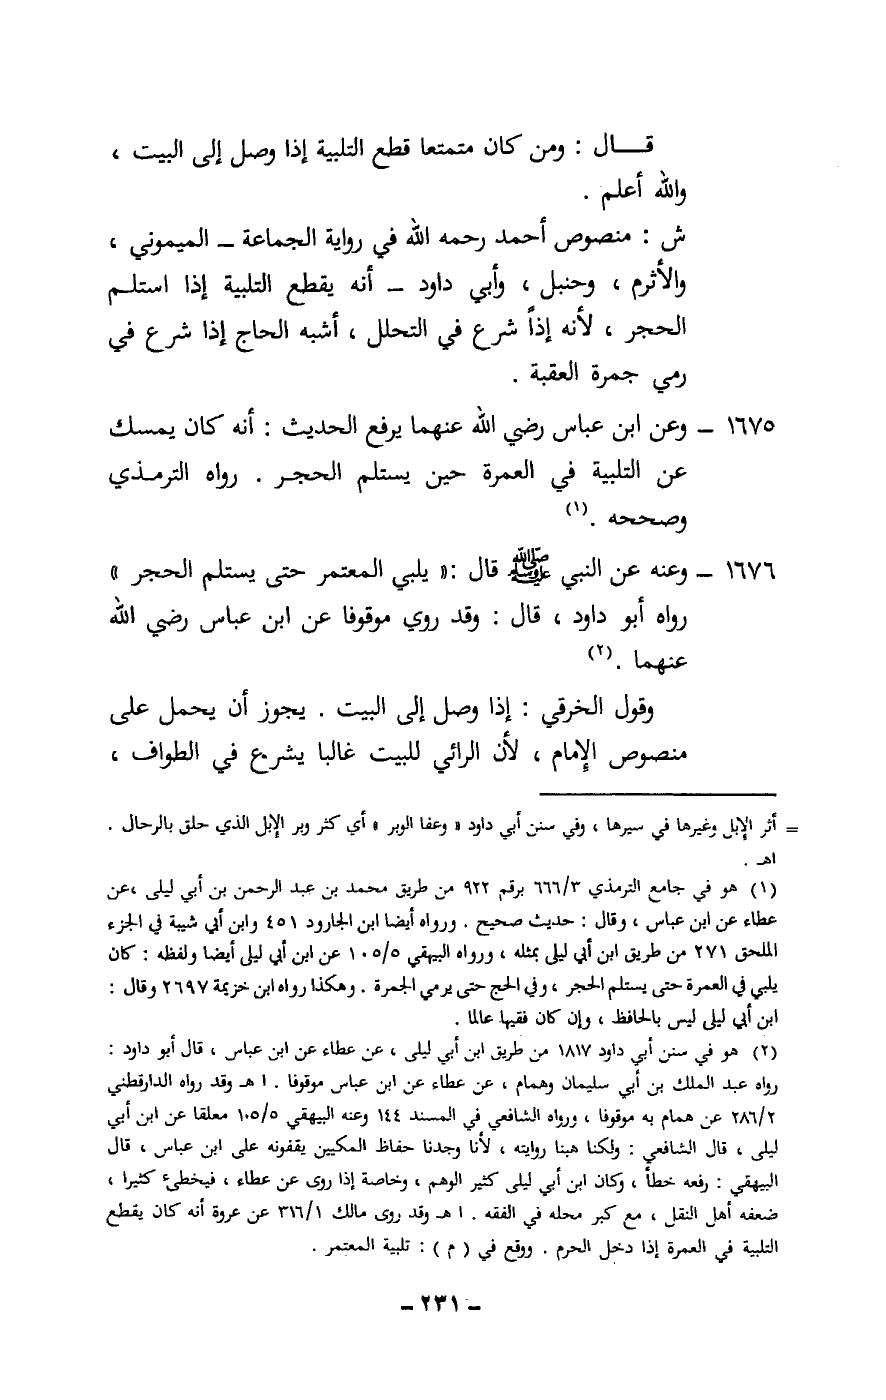 قـــال : ومن كان متمتعا قطع التلبية إذا وصل إلى البيت ،
والله أعلم .
ش : منصوص أحمد رحمه الله في رواية الجماعة ـ الميموني ،
والأثرم ، وحنبل ، وأبي داود ـ أنه يقطع التلبية إذا استلـم
الحجر ، لأنه إذاً شرع في التحلل ، أشبه الحاج إذا شرع في
رمي جمرة العقبة .
١٦٧٥ ـ وعن ابن عباس رضي الله عنهما يرفع الحديث : أنه كان يمسك
عن التلبية في العمرة حين يستلم الحجـر . رواه الترمـذي
وصححه .(١)
١٦٧٦ ـ وعنه عن النبي ﷺ قال :« يلبي المعتمر حتى يستلم الحجر »
رواه أبو داود ، قال : وقد روي موقوفا عن ابن عباس رضي الله
عنهما .(٢)
وقول الخرقي : إذا وصل إلى البيت . يجوز أن يحمل على
منصوص الإمام ، لأن الرائي للبيت غالبا يشرع في الطواف ،
= أثر الإبل وغيرها في سيرها ، وفي سنن أبي داود « وعفا الوبر » أي كثر وبر الإبل الذي حلق بالرحال .
اهـ .
(١) هو في جامع الترمذي ٦٦٦/٣ برقم ٩٢٢ من طريق محمد بن عبد الرحمن بن أبي ليلى ،عن
عطاء عن ابن عباس ، وقال : حديث صحيح . ورواه أيضا ابن الجارود ٤٥١ وابن أبي شيبة في الجزء
الملحق ٢٧١ من طريق ابن أبي ليلى بمثله ، ورواه البيهقي ١٠٥/٥ عن ابن أبي ليلى أيضا ولفظه : كان
يلبي في العمرة حتى يستلم الحجر ، وفي الحج حتى يرمي الجمرة . وهكذا رواه ابن خزيمة ٢٦٩٧ وقال :
ابن أبي ليلى ليس بالحافظ ، وإن كان فقيها عالما .
(٢) هو في سنن أبي داود ١٨١٧ من طريق ابن أبي ليلى ، عن عطاء عن ابن عباس ، قال أبو داود :
رواه عبد الملك بن أبي سليمان وهمام ، عن عطاء عن ابن عباس موقوفا . ا هـ وقد رواه الدارقطني
٢٨٦/٢ عن همام به موقوفا ، ورواه الشافعي في المسند ١٤٤ وعنه البيهقي ١٠٥/٥ معلقا عن ابن أبي
ليلى ، قال الشافعي : ولكنا هبنا روايته ، لأنا وجدنا حفاظ المكيين يقفونه على ابن عباس ، قال
البيهقي : رفعه خطأ ، وكان ابن أبي ليلى كثير الوهم ، وخاصة إذا روى عن عطاء ، فيخطىء كثيرا ،
ضعفه أهل النقل ، مع كبر محله في الفقه . ا هـ وقد روى مالك ٣١٦/١ عن عروة أنه كان يقطع
التلبية في العمرة إذا دخل الحرم . ووقع في ( م ) : تلبية المعتمر .
ـ ٢٣١ ـ